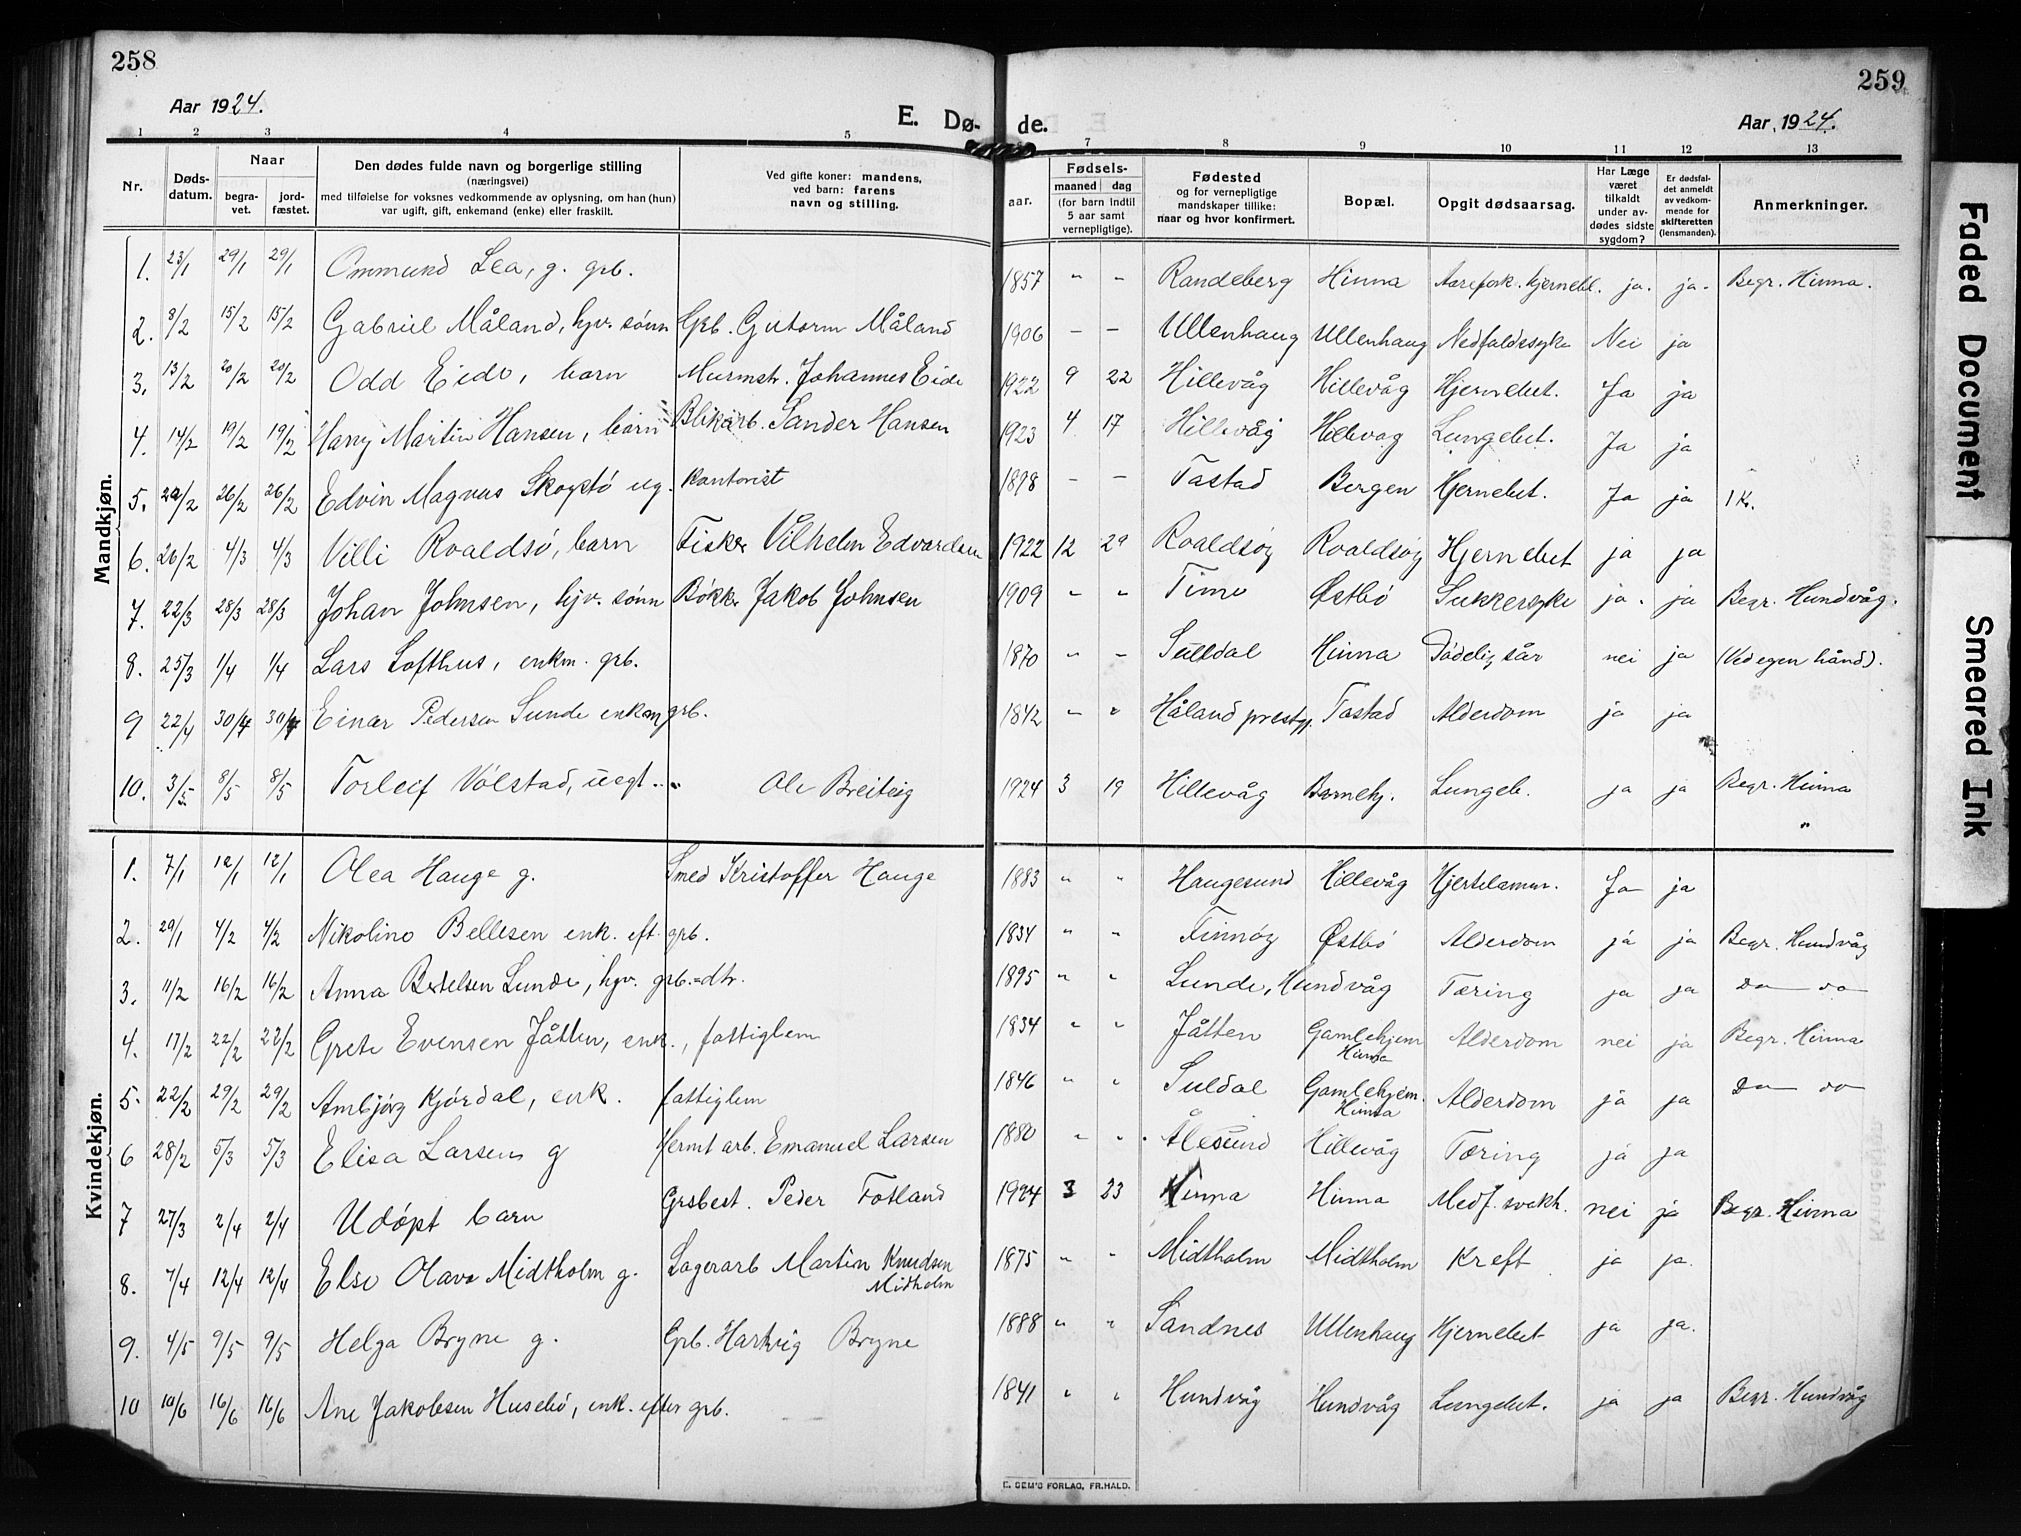 258
259
Aar 1924.
E. Dø- de.
Aar 1924.
1 2 3 4 5 7 8 9 10 11 12 13
Nr.
Døds-
datum.
Naar
begra-
vet.
jord-
fæstet.
Den dødes fulde navn og borgerlige stilling
(næringsvei)
med tilføielse for voksnes vedkommende av oplysning, om han (hun)
var ugift, gift, enkemand (enke) eller fraskilt.
Ved gifte koner: mandens,
ved barn: farens
navn og stilling.
Fødsels-
aar.
maaned dag
(for barn indtil
5 aar samt
vernepligtige).
Fødested
og for vernepligtige
mandskaper tillike:
naar og hvor konfirmert.
Bopæl.
Opgit dødsaarsag.
Har Læge
været
tilkaldt
under av-
dødes sidste
sygdom?
Er dødsfal-
det anmeldt
av vedkom-
mende for
skifteretten
(lensmanden).
Anmerkninger.
Mandkjøn.
1. 23/1 29/1 29/1 Ommund Lea, g. grb. 1857 " - Randeberg Hinna Aarefork. hjernebl. ja. ja. Begr. Hinna.
2. 8/2 15/2 15/2 Gabriel Måland, hjv. sønn Grb. Gutorm Måland 1906 - - Ullenhaug Ullenhaug Nedfaldssyke Nei ja
3. 13/2 20/2 20/2 Odd Eide, barn Murmstr. Johannes Eide 1922 9 22 Hillevåg Hillevåg Hjernebet. Ja ja
4. 14/2 19/2 19/2 Harry Martin Hansen, barn Blikarb. Sander Hansen 1923 4 17 Hillevåg Hillevåg Lungebet. Ja ja
5. 20/2 26/2 26/2 Edvin Magnus Skogstø ug. kontorist 1898 - - Tastad Bergen Hjernebet. Ja ja 1 K.
6. 26/2 4/3 4/3 Villi Roaldsø, barn Fisker Vilhelm Edvardsen 1922 12 29 Roaldsøy Roaldsøy Hjernebet ja ja
7. 22/3 28/3 28/3 Johan Johnsen, hjv. sønn Bøkker Jakob Johnsen 1909 " " Time Østbø Sukkersyke ja. ja Begr. Hundvåg.
8. 25/3 1/4 1/4 Lars Lofthus, enkm. grb. 1870 " - Suldal Hinna Dødelig sår nei ja (Ved egen hånd).
9 22/4 30/4 30/4 Einar Pedersen Sunde enkem grb. 1842 - " Håland prestgj. Tastad Alderdom ja ja
10. 3/5 8/5 8/5 Torleif Vølstad, uegt .. " Ole Breiteig 1924 3 19 Hillevåg Barnehj. Lungeb. ja ja Begr. Hinna
"
Kvindekjøn.
1. 7/1 12/1 12/1 Olea Hauge g. Smed Kristoffer Hauge 1883 " " Haugesund Hillevåg Hjertelamm. Ja ja
2. 29/1 4/2 4/2 Nikoline Bellesen enk. eft. grb. 1834 " " Finnøy Østbø Alderdom ja ja Begr. Hundvåg
3. 11/2 16/2 16/2 Anna Bertelsen Lunde, hjv. grb.=dtr. 1895 " " Lunde, Hundvåg Tæring ja ja do do
4. 17/2 22/2 22/2 Grete Evensen Jåtten, enk., fattiglem 1834 " " Jåtten Gamlehjem Hinna Alderdom nei ja Begr. Hinna
5. 22/2 29/2 29/2 Ambjørg Kjørdal, enk. fattiglem 1846 " " Suldal Gamlehjem. Hinna Alderdom ja ja do do
6 28/2 5/3 5/3 Elisa Larsen g Hermt arb. Emanuel Larsen 1880 " " Ålesund Hillevåg Tæring ja ja
7 27/3 2/4 2/4 Udøpt barn Grsbest. Peder Fotland 1924 3 23 Hinna Hinna Medf. svakh. nei ja Begr. Hinna
8. 7/4 12/4 12/4 Else Olava Midtholm g. Lagerarb Martin Knudsen Midholm 1875 " " Midtholm Midtholm Kreft ja ja.
9. 4/5 9/5 9/5 Helga Bryne g. Grb. Hartvig Bryne 1888 " " Sandnes Ullenhaug Hjernebet ja ja.
10 10/6 16/6 16/6 Ane Jakobsen Husebø, enk. efter grb. 1841 " " Hundvåg Hundvåg Lungebet. ja ja Begr. Hundvåg
E. SEM'S FORLAG, FR.HALD.
Faded Document
Smeared Ink